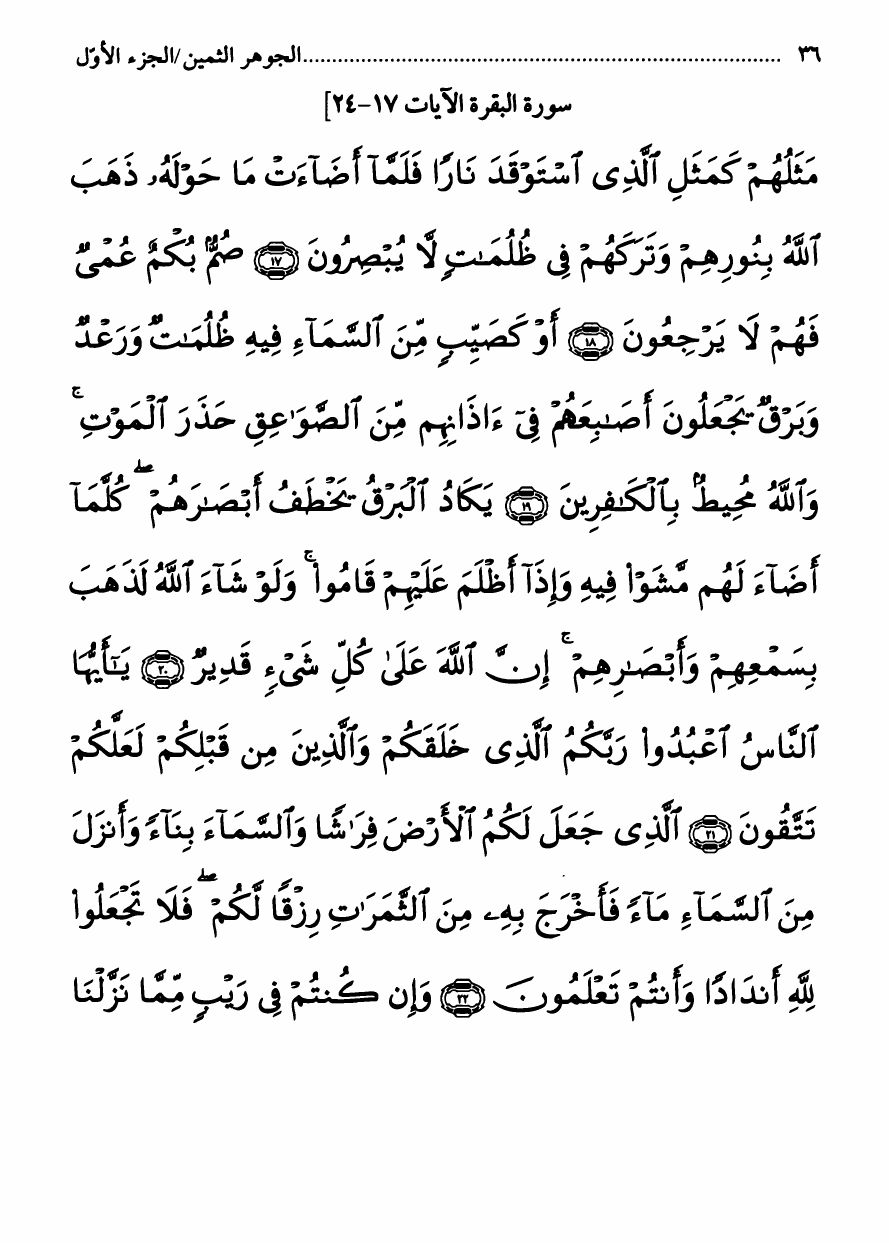 ٣٦ ................................................................................ الجوهر الثمين/الجزء الأوّل
سورة البقرة الآيات ١٧-٢٤]
مَثَلُهُمْ كَمَثَلِ ٱلَّذِى ٱسْتَوْقَدَ نَارًا فَلَمَّآ أَضَآءَتْ مَا حَوْلَهُۥ ذَهَبَ
ٱللَّهُ بِنُورِهِمْ وَتَرَكَهُمْ فِى ظُلُمَـٰتٍ لَّا يُبْصِرُونَ ١٧ صُمٌّۢ بُكْمٌ عُمْىٌ
فَهُمْ لَا يَرْجِعُونَ ١٨ أَوْ كَصَيِّبٍ مِّنَ ٱلسَّمَآءِ فِيهِ ظُلُمَـٰتٌ وَرَعْدٌ
وَبَرْقٌ يَجْعَلُونَ أَصَـٰبِعَهُمْ فِىٓ ءَاذَانِهِم مِّنَ ٱلصَّوَٰعِقِ حَذَرَ ٱلْمَوْتِ ۚ
وَٱللَّهُ مُحِيطٌۢ بِٱلْكَـٰفِرِينَ ١٩ يَكَادُ ٱلْبَرْقُ يَخْطَفُ أَبْصَـٰرَهُمْ ۖ كُلَّمَآ
أَضَآءَ لَهُم مَّشَوْا۟ فِيهِ وَإِذَآ أَظْلَمَ عَلَيْهِمْ قَامُوا۟ ۚ وَلَوْ شَآءَ ٱللَّهُ لَذَهَبَ
بِسَمْعِهِمْ وَأَبْصَـٰرِهِمْ ۚ إِنَّ ٱللَّهَ عَلَىٰ كُلِّ شَىْءٍ قَدِيرٌ ٢٠ يَـٰٓأَيُّهَا
ٱلنَّاسُ ٱعْبُدُوا۟ رَبَّكُمُ ٱلَّذِى خَلَقَكُمْ وَٱلَّذِينَ مِن قَبْلِكُمْ لَعَلَّكُمْ
تَتَّقُونَ ٢١ ٱلَّذِى جَعَلَ لَكُمُ ٱلْأَرْضَ فِرَٰشًا وَٱلسَّمَآءَ بِنَآءً وَأَنزَلَ
مِنَ ٱلسَّمَآءِ مَآءً فَأَخْرَجَ بِهِۦ مِنَ ٱلثَّمَرَٰتِ رِزْقًا لَّكُمْ ۖ فَلَا تَجْعَلُوا۟
لِلَّهِ أَندَادًا وَأَنتُمْ تَعْلَمُونَ ٢٢ وَإِن كُنتُمْ فِى رَيْبٍ مِّمَّا نَزَّلْنَا